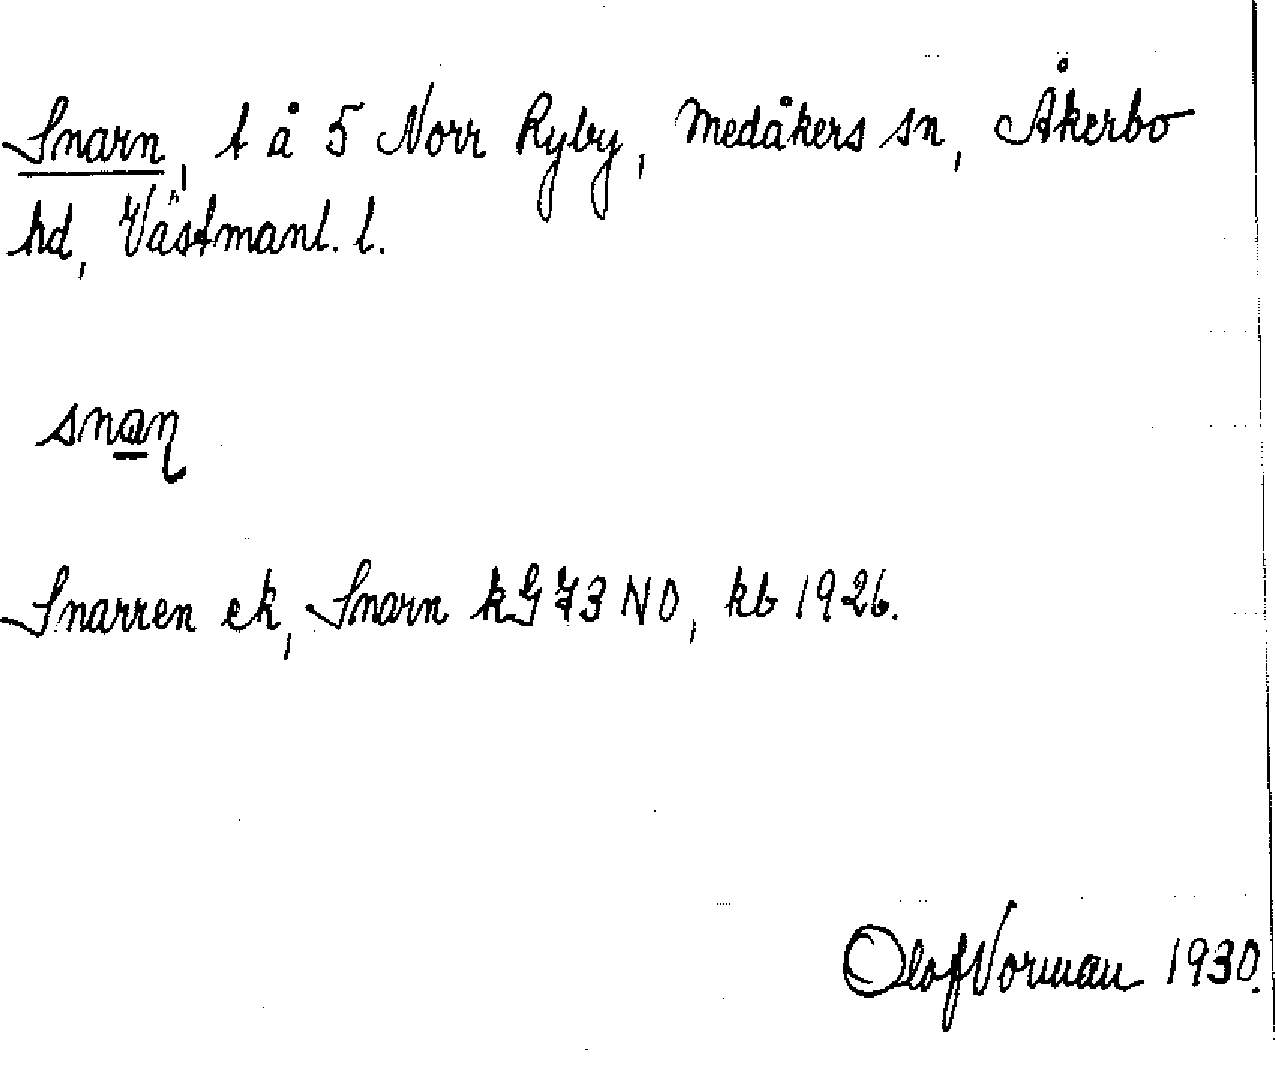 Snarn, t å 5 Norr Ryby, Medåkers sn, Åkerbo
hd, Västmanl. l.
snaɳ
Snarren ek, Snarn kG73 NO, kb 1926.
Olof Norman 1930.